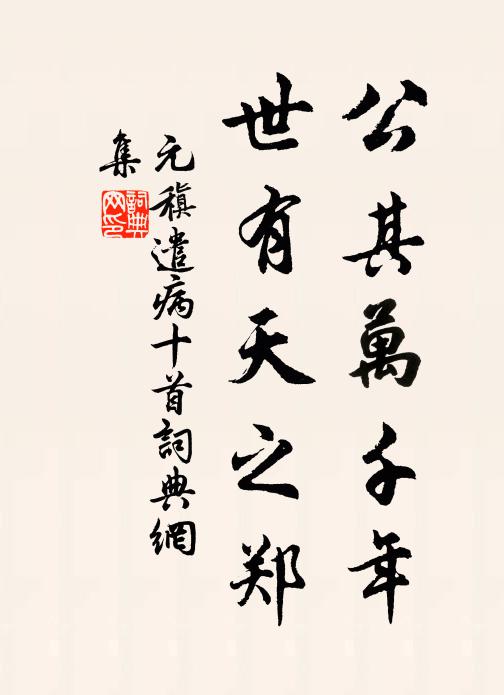 公其萬千年
世有天之郑
元稹遣病十首詞典網
集
詞典
网印